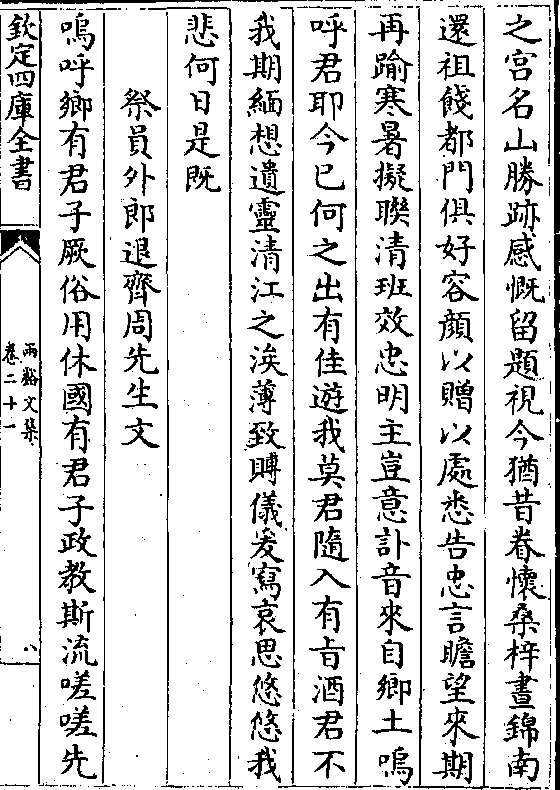 之宫名山勝跡感慨留題視今猶昔眷懷桑梓晝錦南
還祖餞都門俱好容顔以贈以處悉告忠言瞻望來期
再踰寒暑擬聨清班效忠明主豈意訃音來自鄉土嗚
呼君耶今已何之出有佳遊我莫君隨入有㫖酒君不
我期緬想遺靈清江之涘薄致賻儀爰寫哀思悠悠我
悲何日是既
祭員外郎退齊周先生文
嗚呼鄉有君子厥俗用休國有君子政教斯流嗟嗟先
欽定四庫全書
兩谿文集
卷二十一
八